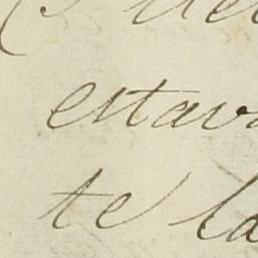 estava
te la